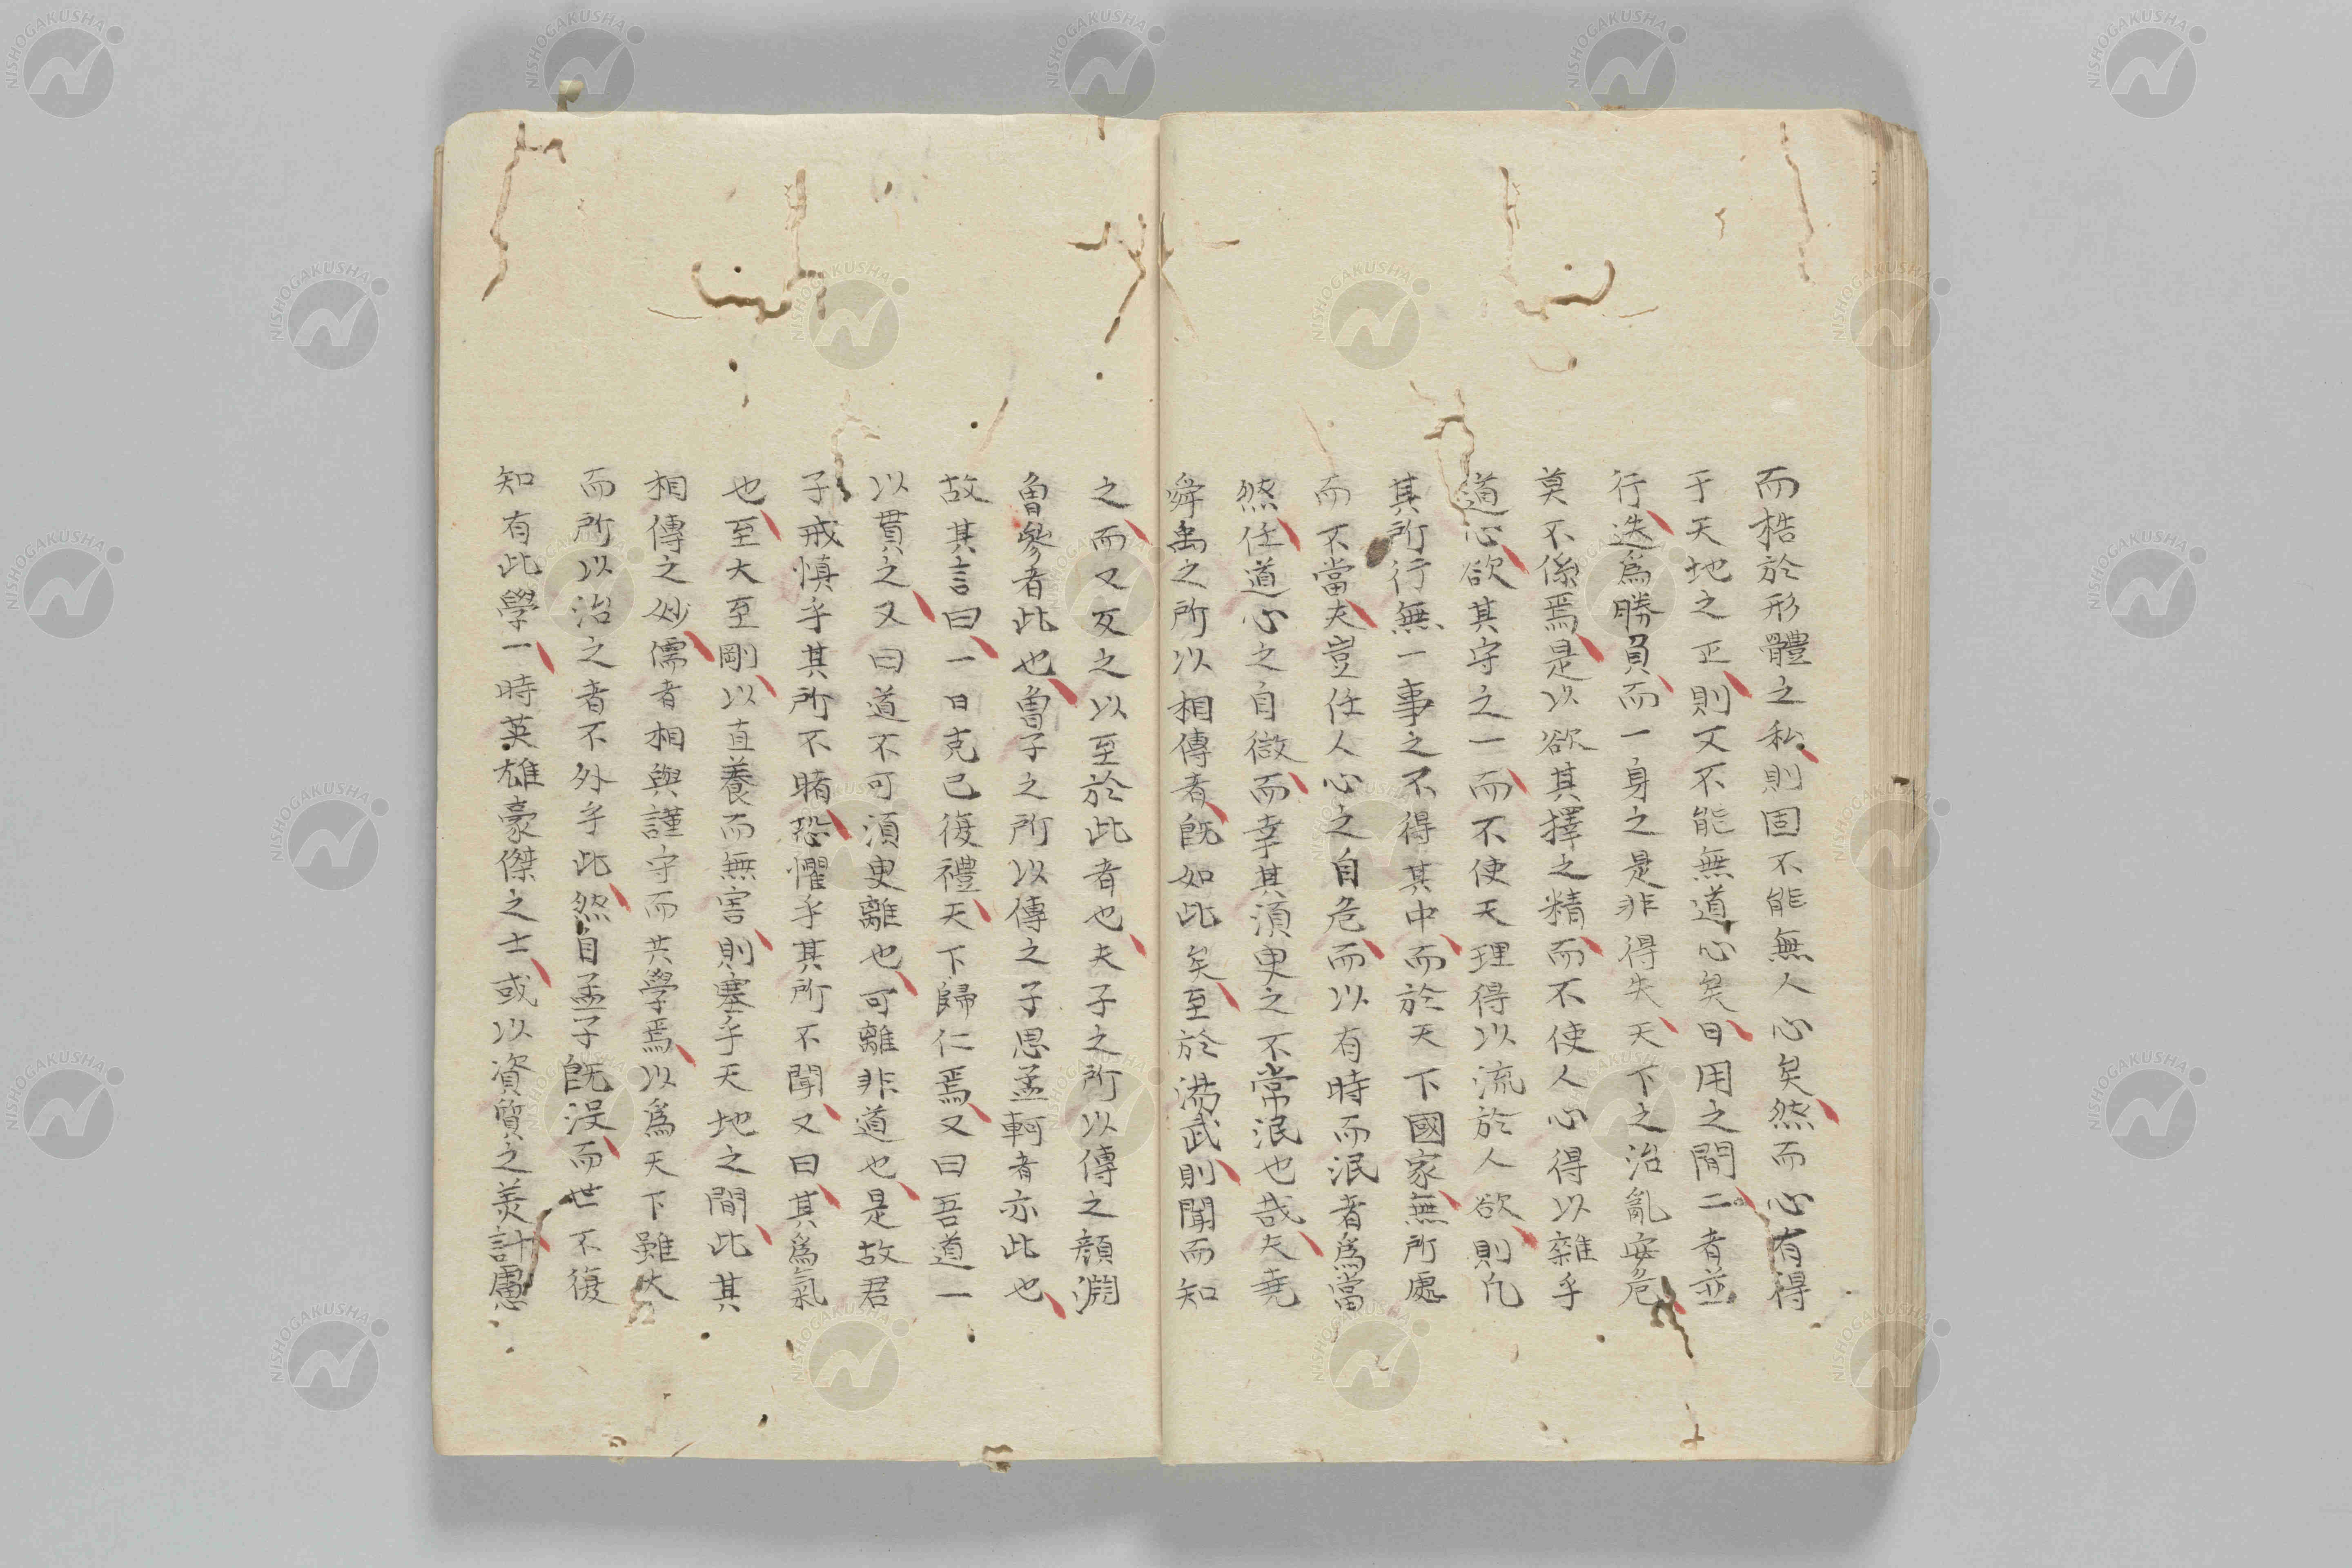 而梏於形體之私則固不能無人心矣然而心有得
于天地之正則又不能無道心矣日用之間二者並
行迭爲勝負而一身之是非得失天下之治亂安危
莫不係焉是以欲其擇之精而不使人心得以雜乎
道心欲其守之一而不使天理得以流於人欲則凡
其所行無一事之不得其中而於天下國家無所處
而不當夫豈任人心之自危而以有時而泯者爲當
然任道心之自微而幸其須臾之不常泯也哉夫堯
舜禹之所以相傳者既如此矣至於湯武則聞而知
之而又反之以至於此者也夫子之所以傳之顔淵
曾參者此也曾子之所以傳之子思孟軻者亦此也
故其言曰一日克己復禮天下歸仁焉又曰吾道一
以貫之又曰道不可須臾離也可離非道也是故君
子戒慎乎其所不睹恐懼乎其所不聞又曰其爲氣
也至大至剛以直養而無害則塞乎天地之間此其
相傳之妙儒者相與謹守而共學焉以爲天下雖大
而所以治之者不外乎此然自孟子既沒而世不復
知有此學一時英雄豪傑之士或以資質之美計慮
NISHOGAKUSHA